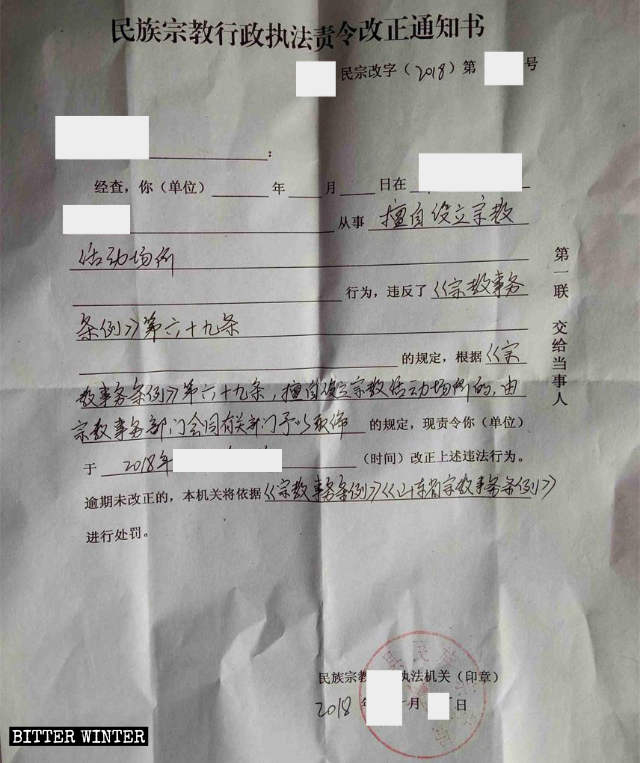 民族宗教行政执法责令改正通知书
民宗改字（2018）第 号
：
经查，你（单位） 年 月 日在
从事 擅自设立宗教
活动场所
行为，违反了《宗教事务
条例》第六十九条
的规定，根据《宗
教事务条例》第六十九条，擅自设立宗教活动场所的，由
宗教事务部门会同有关部门予以取缔 的规定，现责令你（单位）
于 2018年 （时间）改正上述违法行为。
逾期未改正的，本机关将依据《宗教事务条例》《山东省宗教事务条例》
进行处罚。
第一联 交给当事人
民族宗教 执法机关（印章）
2018年 月 日
BITTER WINTER